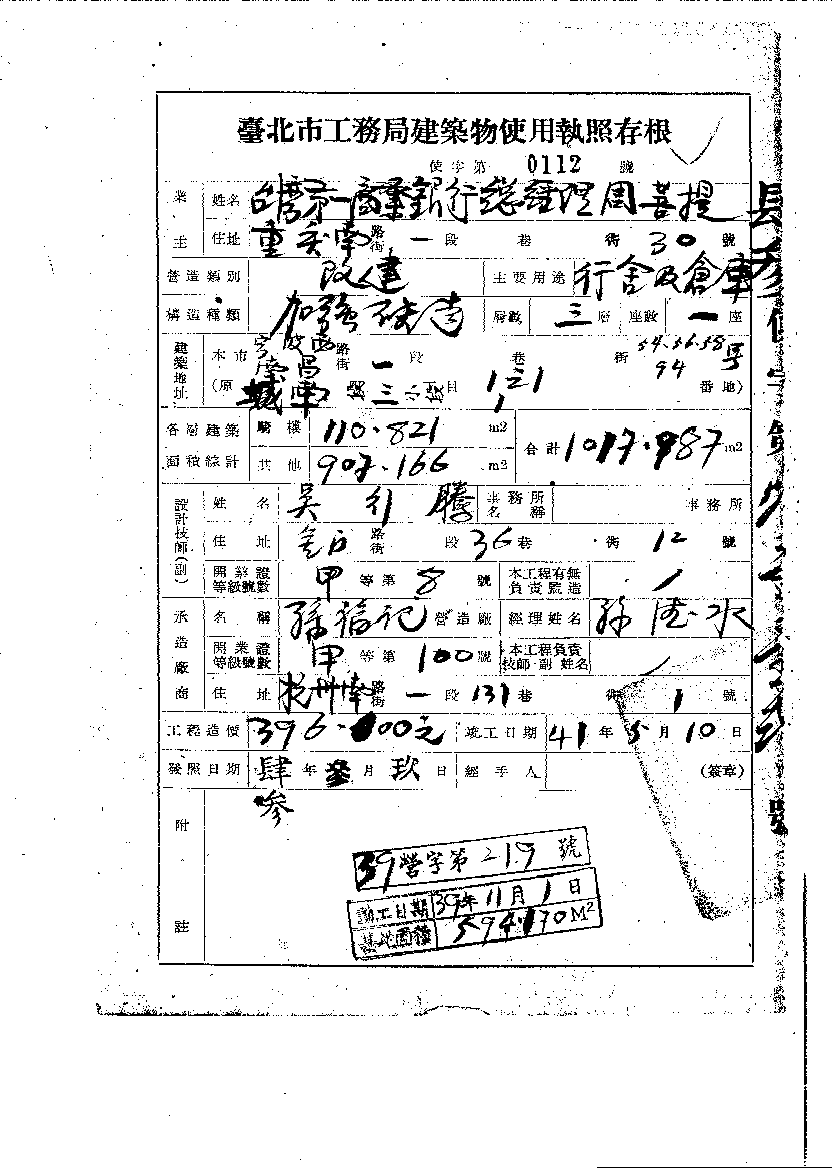 臺北市工務局建築物使用執照存根
使字第 0112 號
業主 姓名 台灣第一商業銀行總經理周菩提
住址 重慶南 路街 一 段 巷 街 30 號
營造類別 改建 主要用途 行舍及倉庫
構造種類 加強磚造 層數 三 層 座數 一 座
建築地址 本市 路街 一 段 巷 街 54.56.58 94 号
(原 城南 段 三 小段 目 番地)
各層建築面積總計 騎樓 110.821 m2 合計 1017.987 m2
其他 907.166 m2
設計技師(副) 姓名 吳引騰 業務所名稱 事務所
住址 路街 段 36 巷 街 12 號
開業證等級號數 甲 等第 8 號 本工程有無負責監造
承造廠商 名稱 孫福記 營造廠 經理姓名 孫德水
開業證等級號數 甲 等第 100 號 本工程負責技師·副 姓名
住址 杭州南 路街 一 段 131 巷 街 1 號
工程造價 396.000元 竣工日期 41 年 5 月 10 日
發照日期 肆參 年 月 玖 日 經手人 (簽章)
附註
39營字第 219 號
動工日期 39年11月1日
基地面積 594.170M²